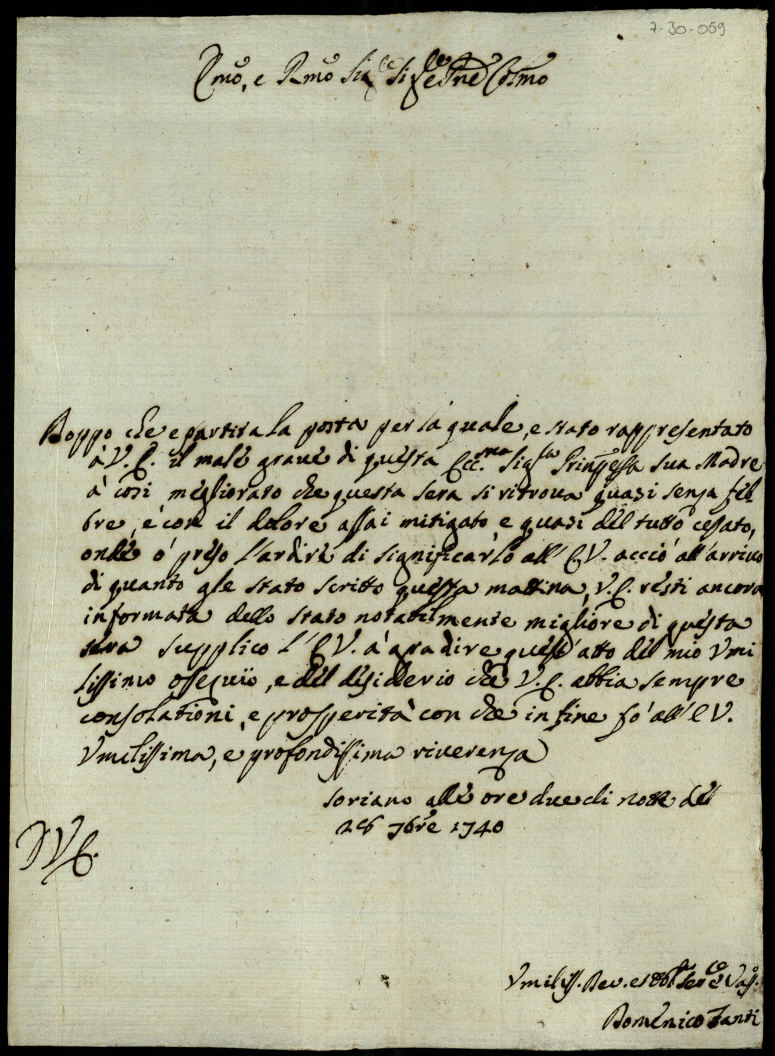 7-30-059
Emo, e Rmo Sig.re Sig.re e Pne Colmo
Doppo che e partita la posta per la quale, e stato rappresentato
à V. E. il male grave di questa Ecc.ma Sig.ra Prinpessa sua Madre
à cosi megliorato che questa sera si ritrova quasi senza feb
bre, è con il dolore assai mitigato e quasi del tutto cessato,
onde ò preso l'ardire di significarlo all' E.V. acciò all'arrivo
di quanto gle stato scritto questa mattina, V.E. resti ancora
informata dello stato notabilmente migliore di questa
sera supplico l' E.V. à gradire quest'atto del mio Vmi
lissimo ossequio, e del disiderio che V.E. abbia sempre
consolationi, e prosperità con che in fine fò all' E.V.
Vmilissima, e profondissima riverenza
Soriano alle ore due di notte del
28 7bre 1740
D V E.
Vmiliss. Dev. ed Obl. Ser.e Vass.
Domenico Fanti